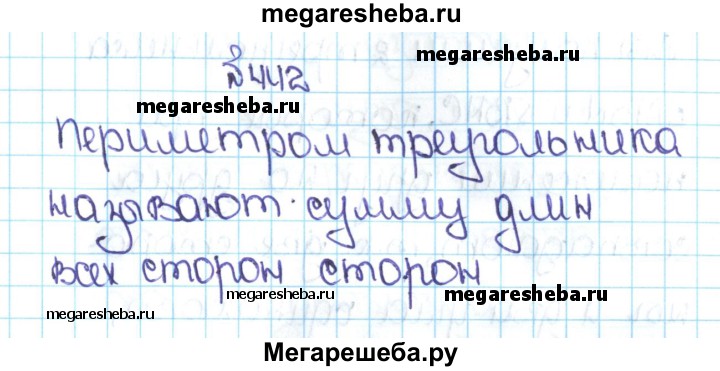 megaresheba.ru
№442
megaresheba.ru
megaresheba.ru
Периметром треугольника
megaresheba.ru
называют сумму длин
всех сторон сторон
megaresheba.ru
megaresheba.ru
megaresheba.ru
Мегарешеба.ру